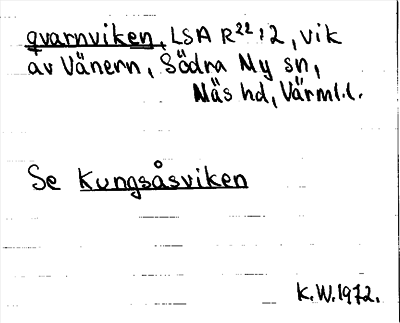 qvarnviken, LSA R22:2, vik
av Vänern, Södra Ny sn,
Näs hd, Värml.l.
Se Kungsåsviken
K.W.1972.